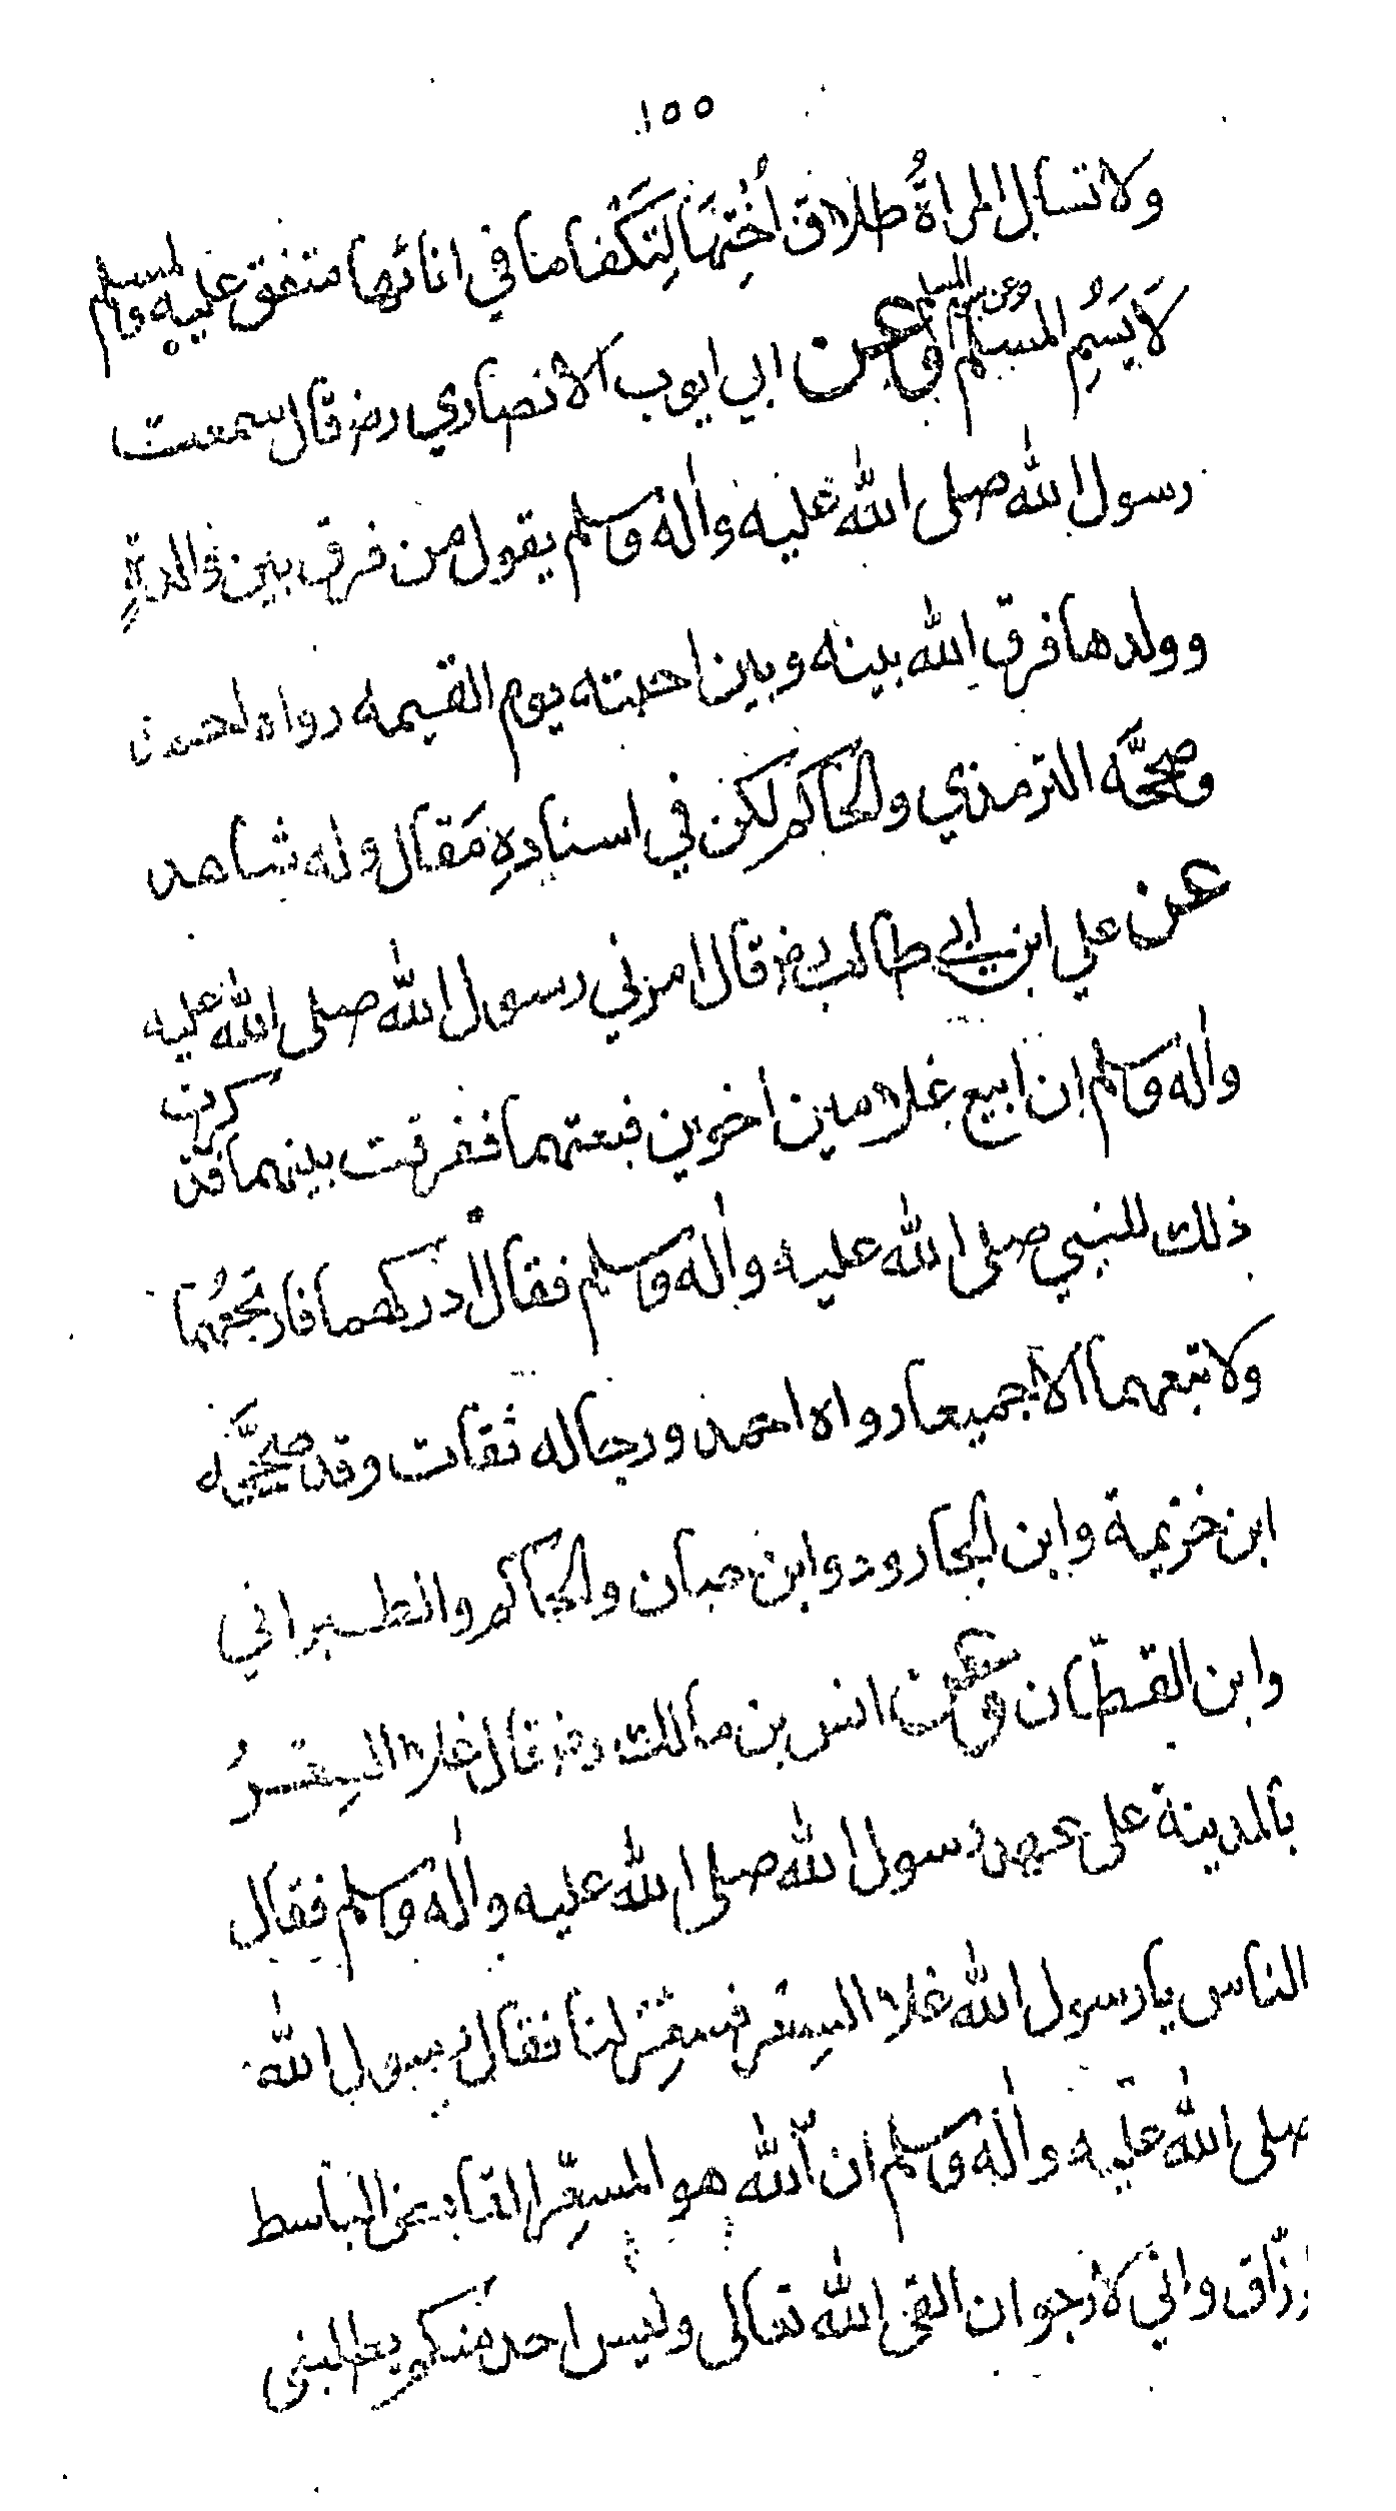 ١٥٥
ولا تسأل المراةُ طلاق أُخْتِهَا لِتَكْفَا ما في انائها متفق عليه ولمسلم
لَا يَسُمِ المُسْلِم وعن ابي ايوب الانصاري رض قال سمعت
رسول الله صلى الله عليه واله وسلم يقول من فرق بين والدةٍ
وولدها فرق الله بينه وبين احبته يوم القيمه رواه احمد و
صححَّه الترمذي والحاكم لكن في اسنادِهِ مَقال وله شاهد
عن علي ابن ابي طالب رض قال امرني رسول الله صلى الله عليه
واله وسلم ان ابيع غلامين اخوين فبعتهما ففرقت بينهما فذكرت
ذلك للنبي صلى الله عليه واله وسلم فقال ادركهما فارتجعْهُما
ولا تبعهما الا جميعا رواه احمد ورجاله ثقات وقد صححَّه
ابن خزيمة وابن الجارود وابن حبان والحاكم والطبراني
وابن القطّان وعن انس بن مالك رض قال غلا السِعْرُ
بالمدينة على عهد رسول الله صلى الله عليه واله وسلم فقال
الناس يا رسول الله غلا السِعْر فسَعِّرْ لنا فقال رسول الله
صلى الله عليه واله وسلم ان الله هو المسعِّر القابض الباسط
رزّاق واني لارجو ان القى الله تعالى وليس احد منكم يطلبنى